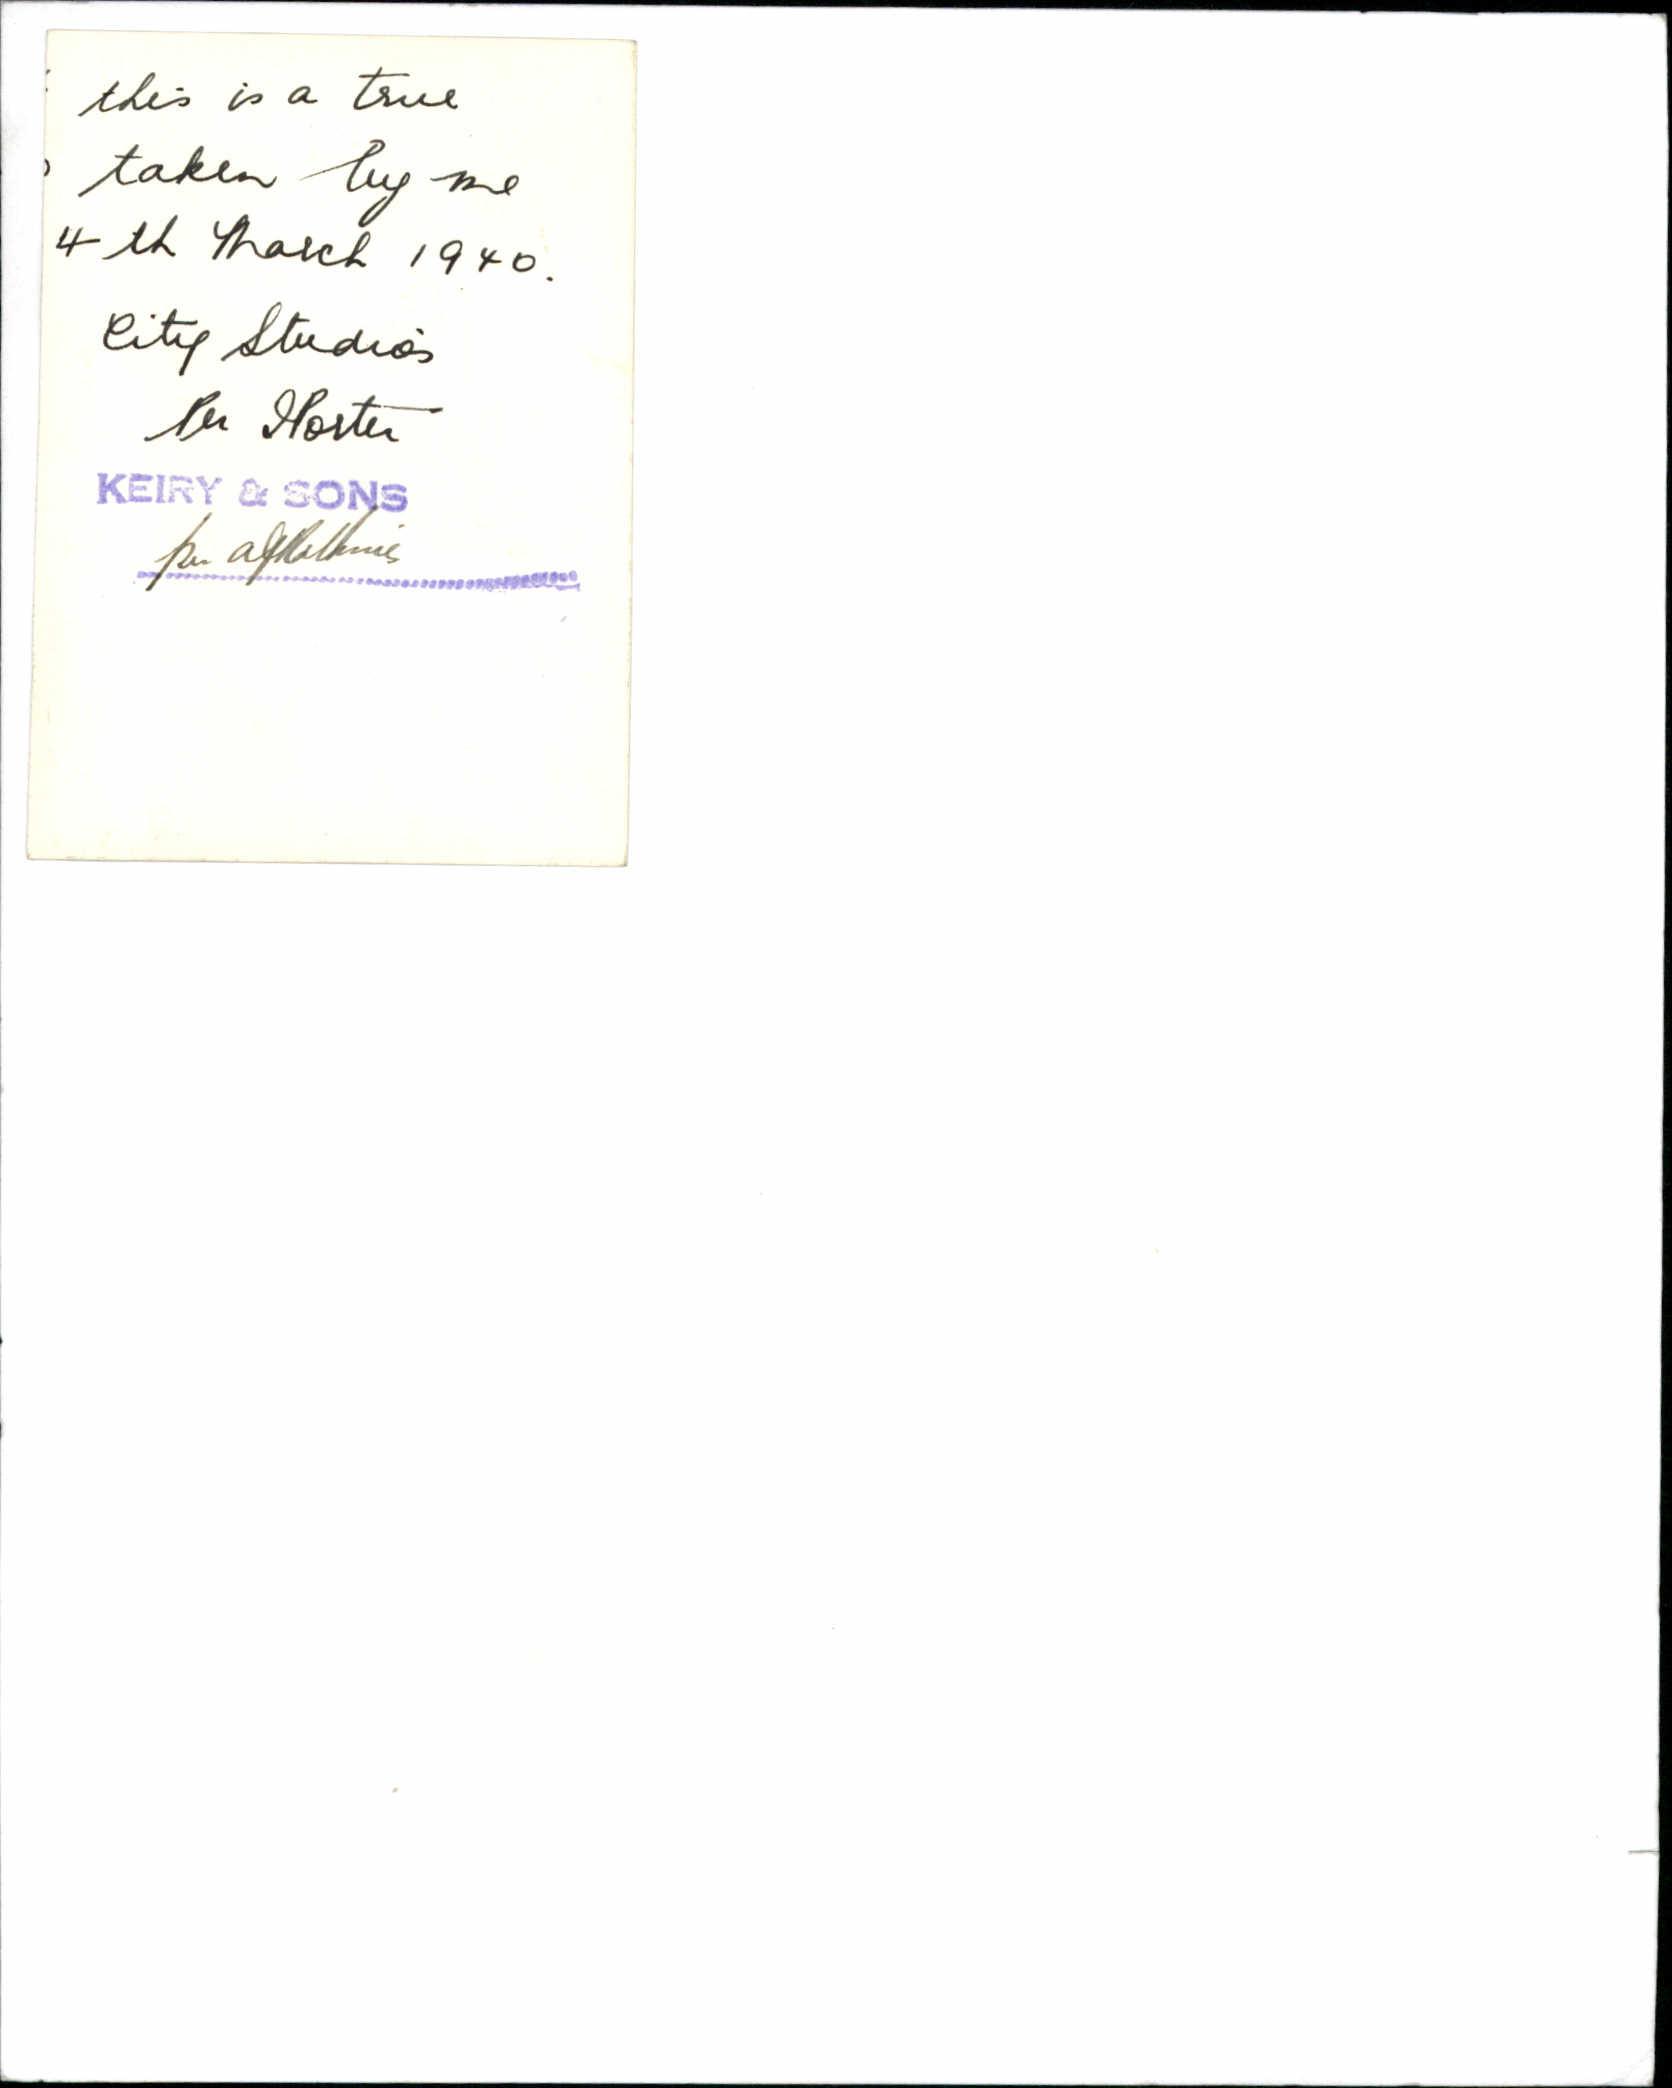 this is a true
taken by me
4th March 1940.
City Studios
Per
KEIRY & SONS
per